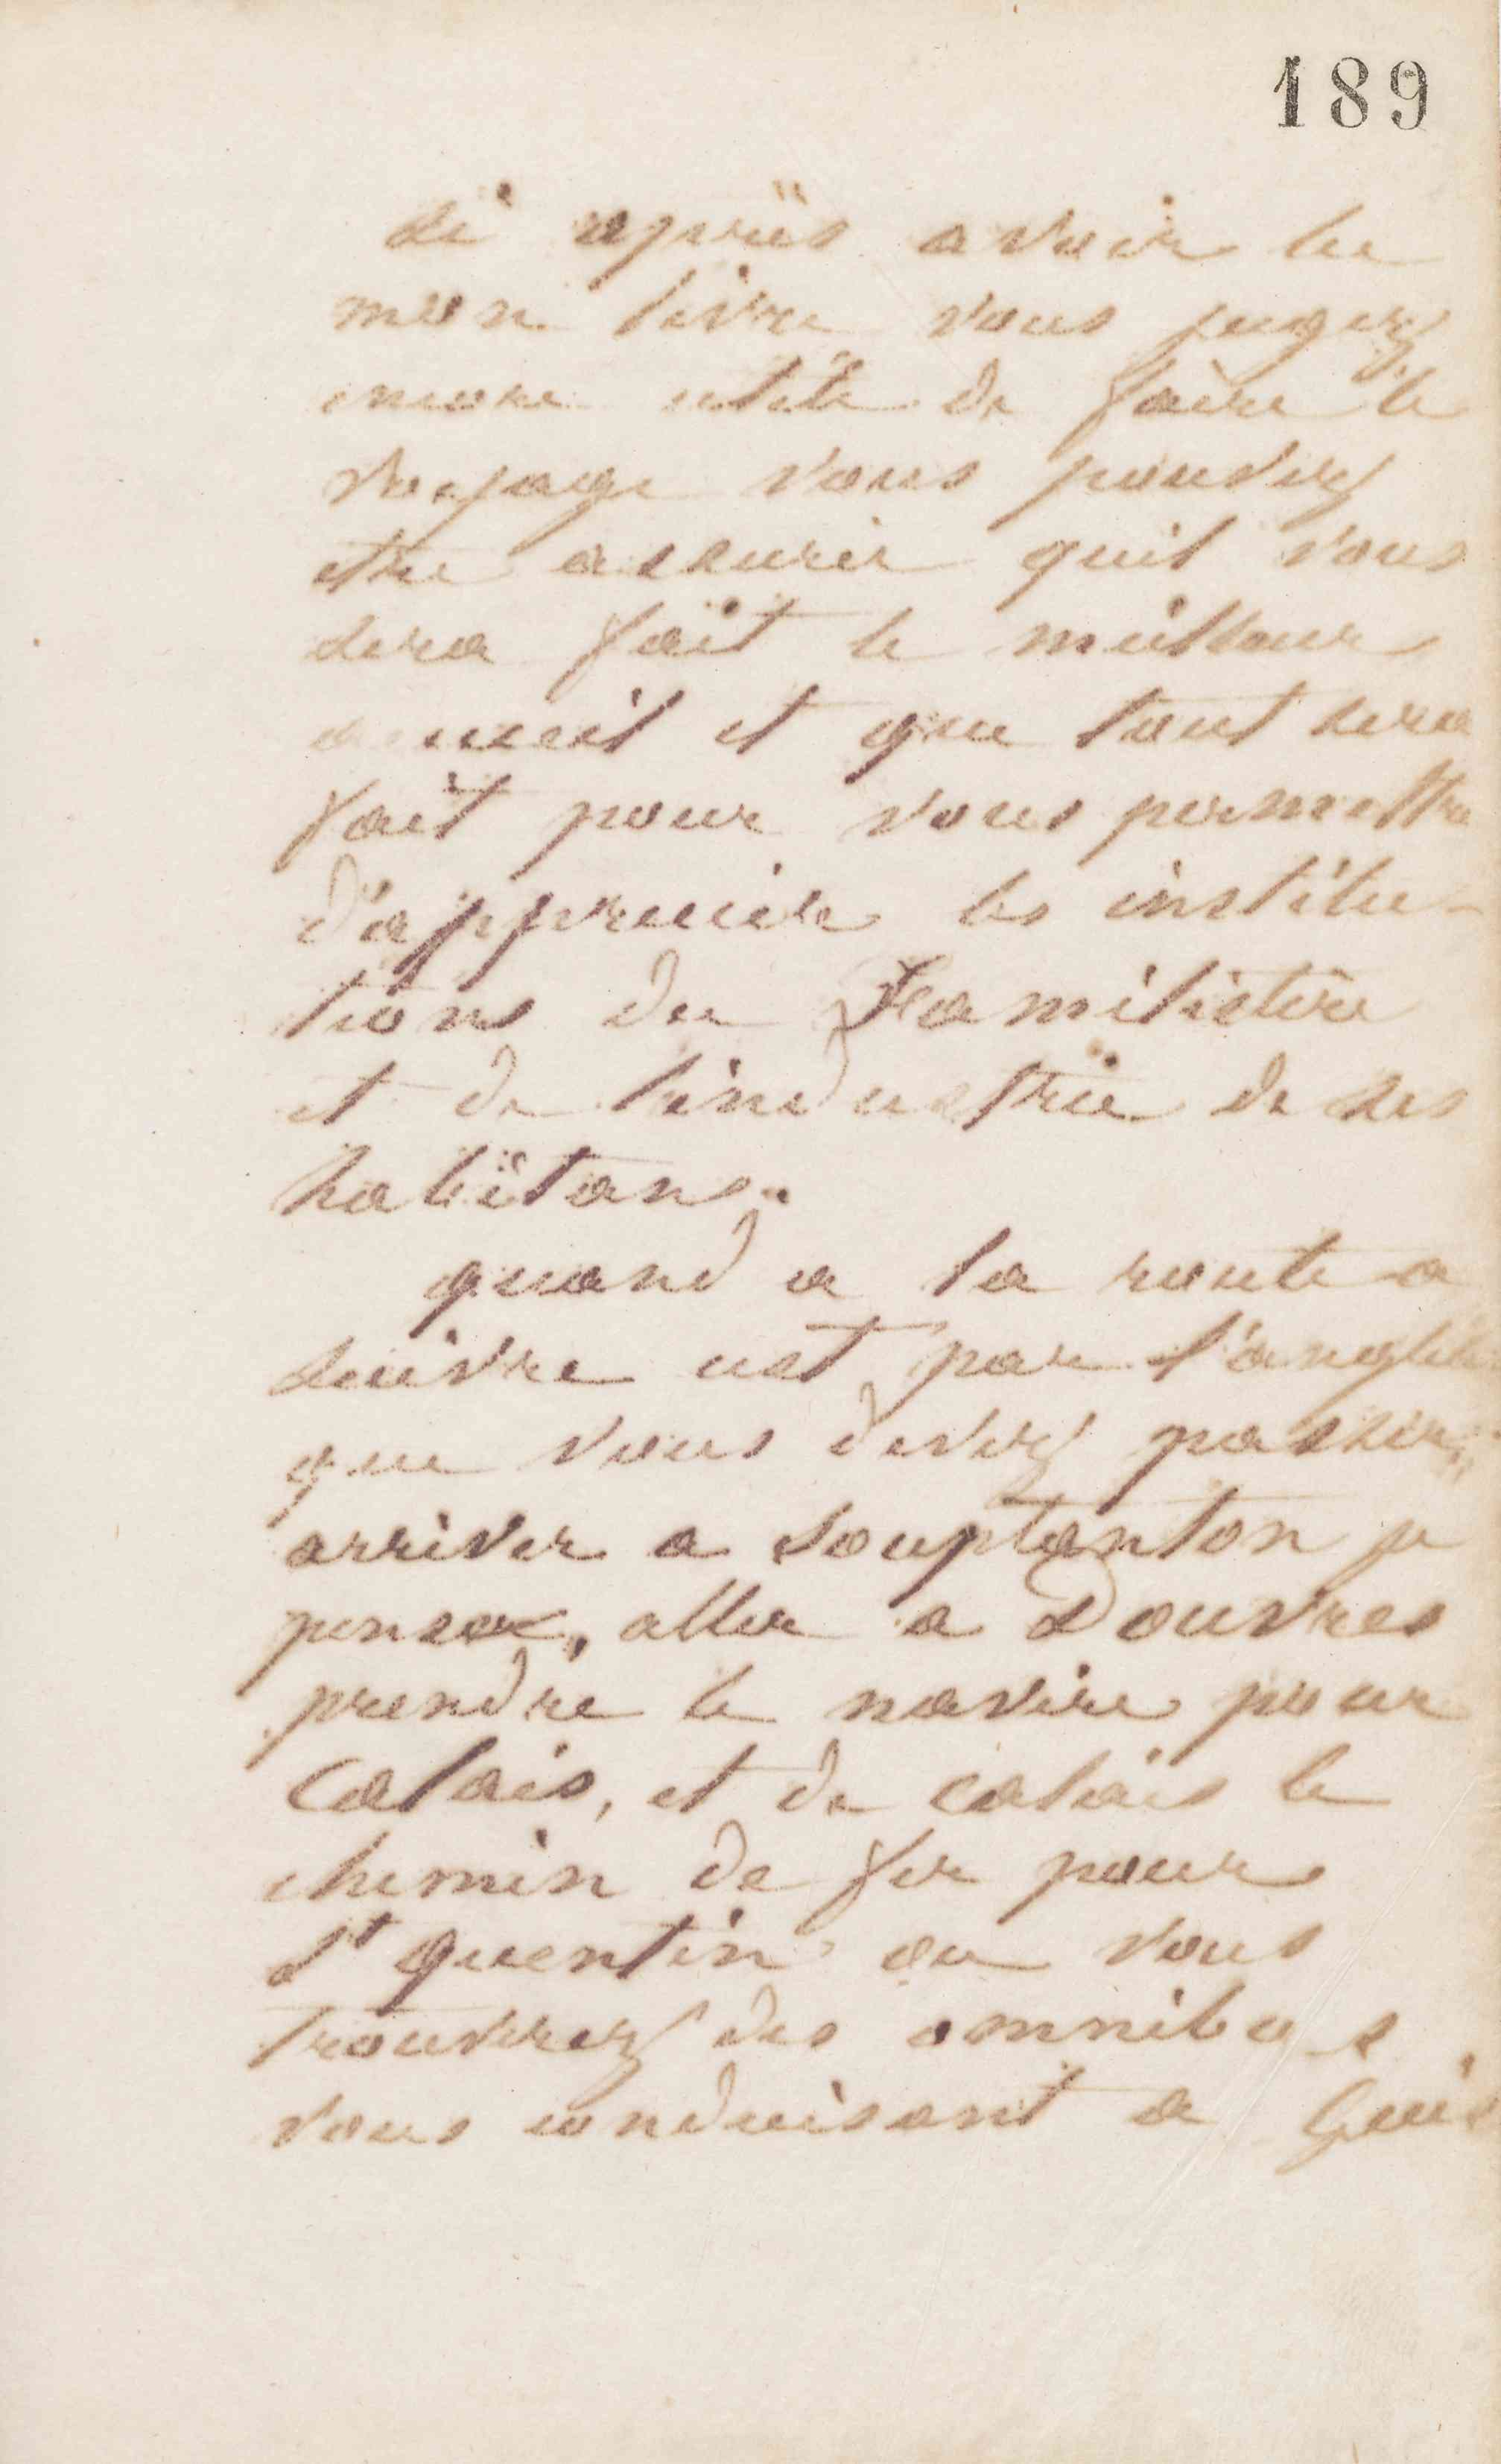 189
si après avoir lu
mon livre vous jugez
encore utile de faire le
voyage vous pouvez
etre assurer quil vous
sera fait le meilleur
acceuil et que tout sera
fait pour vous permettre
d'apprecier les institu-
tions du Familistère
et de lindustrie de ses
habitans.
quand a la route a
suivre cest par l'angleterre
que vous devez passer,
arriver a Souptanton je
pense, aller a Douvres
prendre le navire pour
Calais, et de calais le
chemin de fer pour
St quentin ou vous
trouverez des omnibus
vous conduisant a Guise